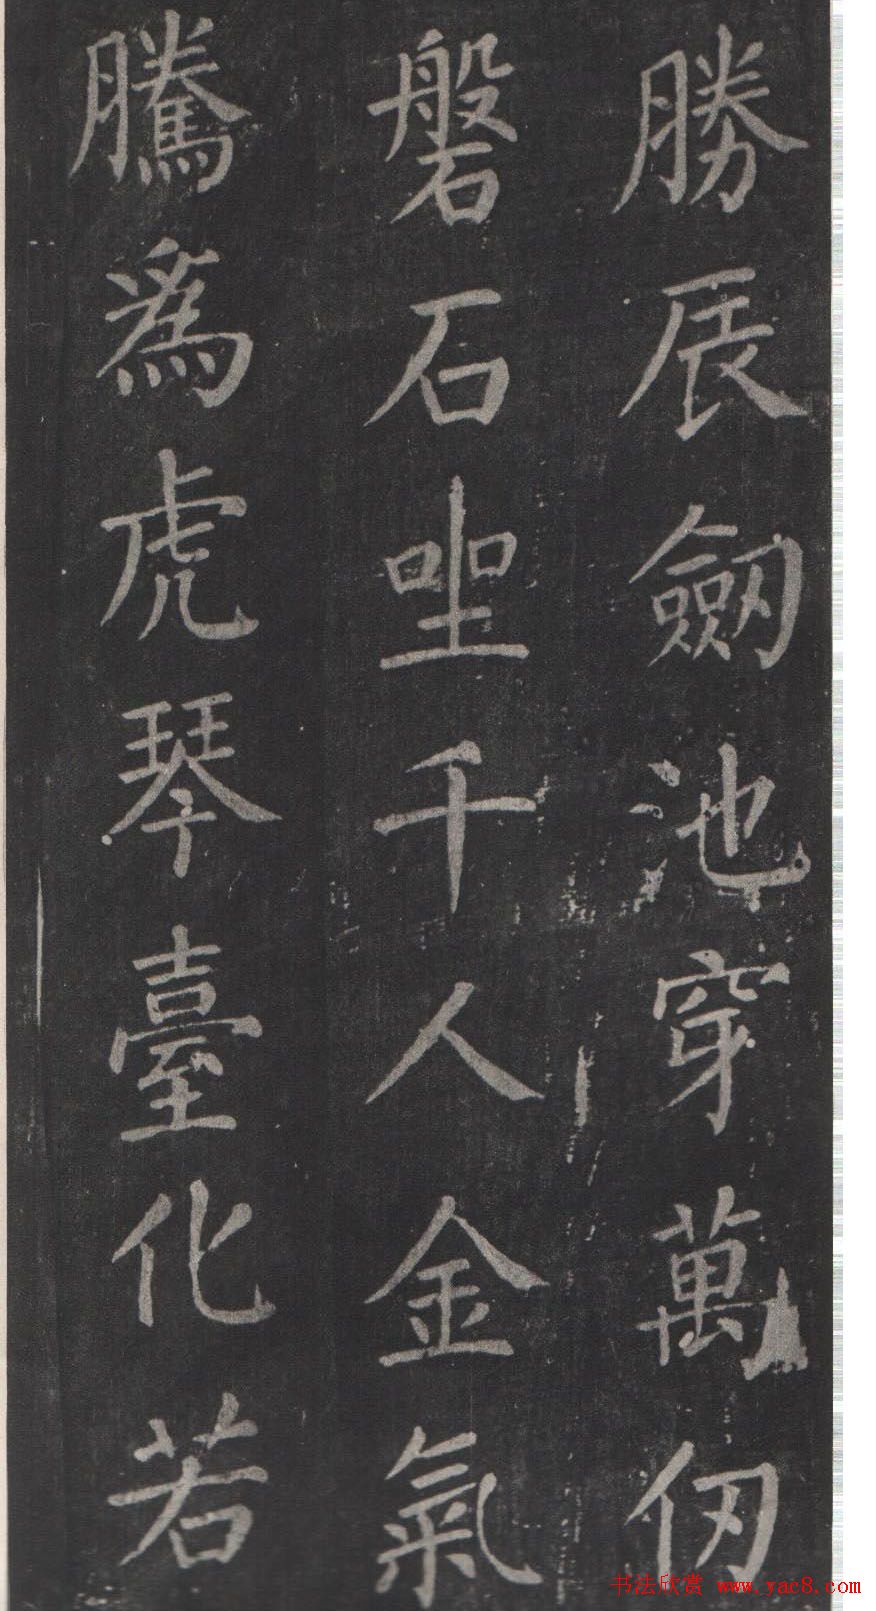 勝辰劒池穿萬仞
磐石坐千人金氣
騰為虎琴臺化若
书法欣赏 www.yac8.com